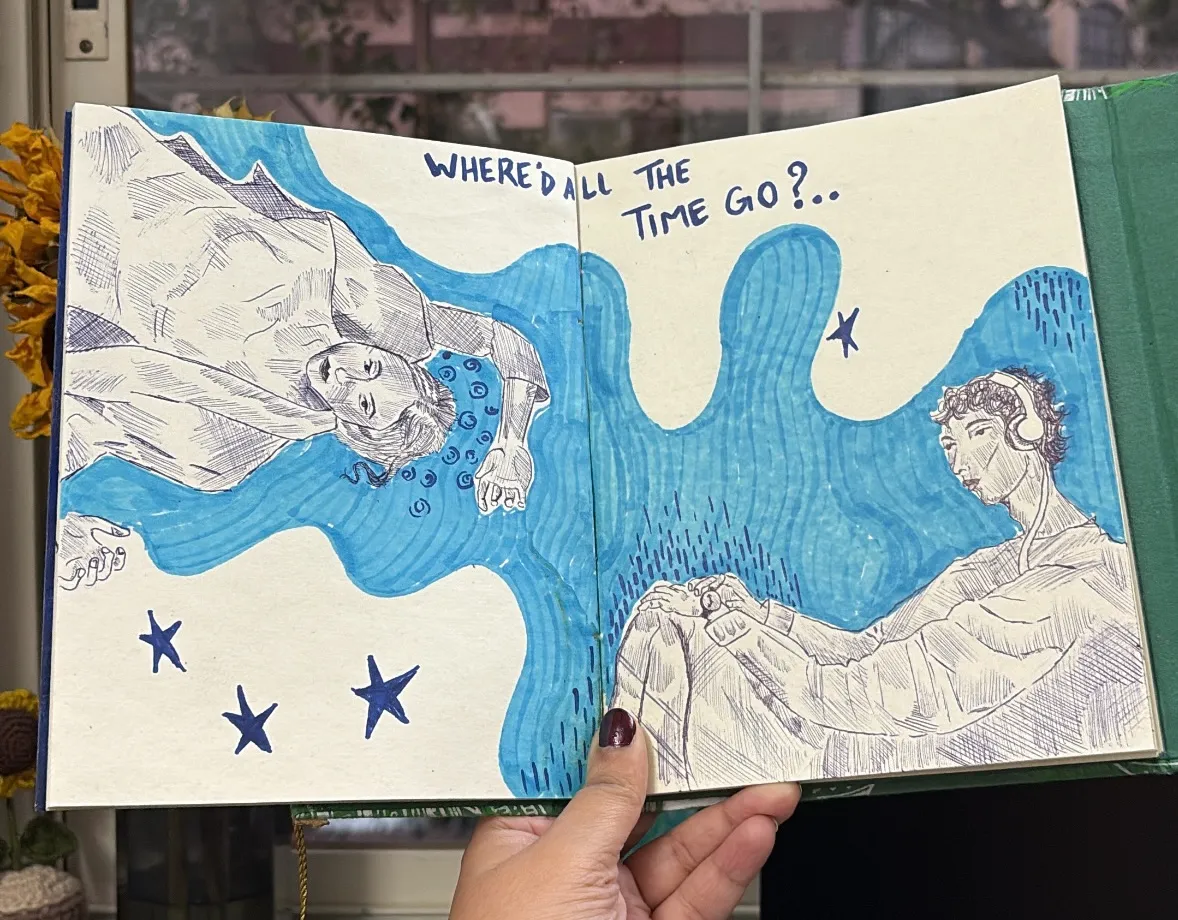 WHERE'D ALL THE
TIME GO?..